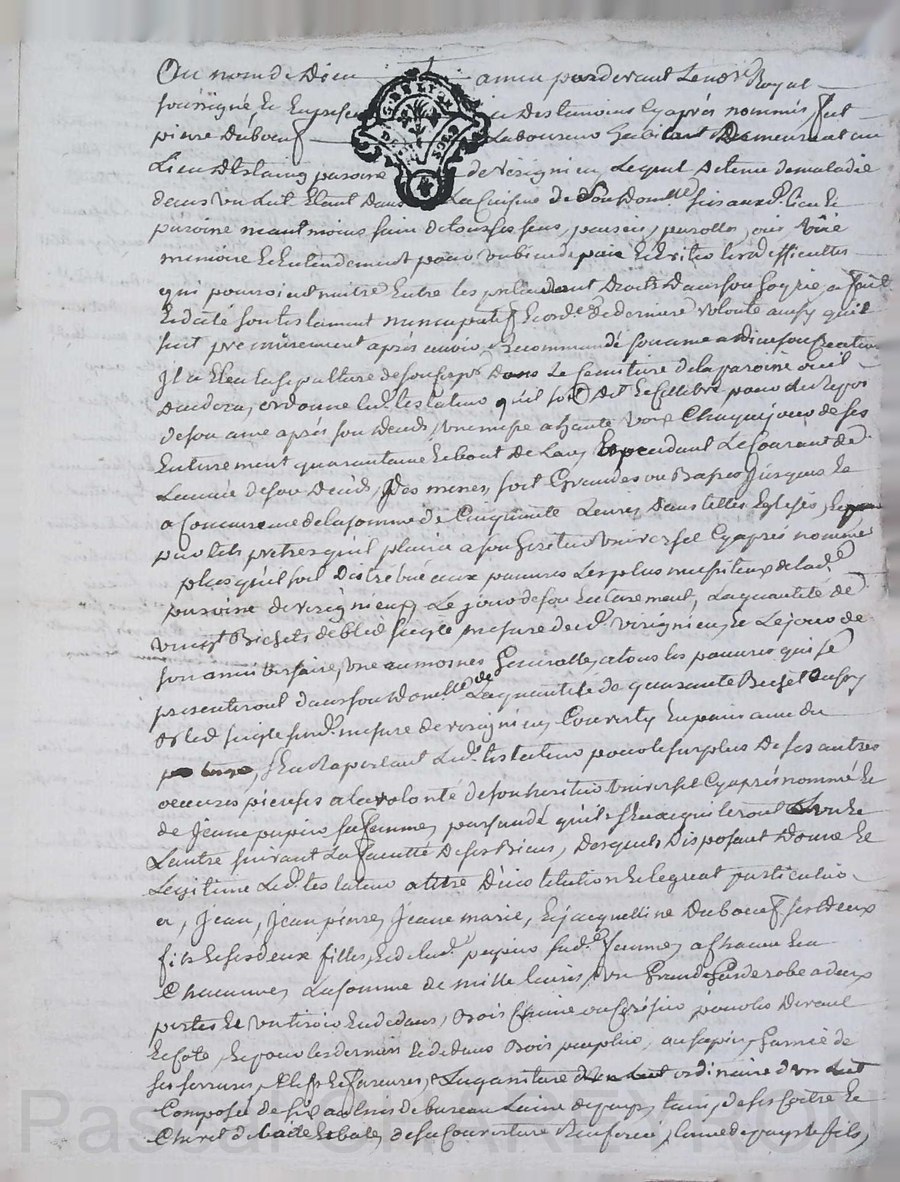 Au nom de Dieu amen pardevant Le no.re Royal
soussigné Et En presence des temoins Cy après nommés fut
pierre duboeuf Laboureur habitant Demeurant au
Lieu paroisse de verignieu Lequel detenu de maladie
dans un Lit Etant dans La Cuisine de Son Domille sis aud. lieu Et
paroisse neantmoins sain de tous ses sens, pensée, parolle, ouie Vüe
memoire Et Entendement pour vû bien de paix Et Eviter les difficultes
qui pouroient naitre Entre les pretendant Droits Dans son hoyrie, a fait
Et dicté son testament nuncupatif Et ord.e de derniere volonté ainsy qu'il
suit premierement après avoir Recommandé son ame a dieu son Createur
Il a Eleu La sepulture de son Corps Dans Le semitiere de la paroisse ou il
decedera, ordonne led. testateur qu'il soit Dit Et Cellebré pour du Repos
de son ame après son deceds, une messe a haute voix Chaque jour de ses
Enterrement quarantaine Et bout de L'an Et pendant Le Courant de
L'année de son Deceds, Des messes, soit Grandes ou Basses Jusques Et
a Concurrence de la somme de Cinquante Livres Dans telles Eglises, Et
par tels pretres qu'il plaira a son heritier Universel Cy après nommé
plus qu'il soit Distribué aux pauvres Les plus necessiteux de lad.
paroisse de verignieu Le jour de son Enterrement, La quantité de
vingt Bichets de bled seigle mesure dud. virignieu, Et Le jour de
son anniversaire, une aumosne Generalle, a tous les pauvres qui se
presenteront dans son Domille de La quantité de quarante Bichet aussy
bled seigle sud. mesure de verignieu, Convertis En pain
, s'En Raportant Led. testateur pour le surplus De ses autres
oeuvres pieuses a la volonté de son heritier Universel Cy après nommé Et
de Jeane papier sa femme, persuadé qu'ils s'En aquiteront L'un Et
L'autre suivant La faculté De ses Biens, Desquels Disposant Donne Et
Legitime Led. testateur a titre D'institution Et legat particulier
a, Jean, Jean pierre, Jeane marie, Et jacquelline Duboeuf ses deux
fils Et ses deux filles, Et de lad. papier sad. femme, a Chacun Et a
Chacunne, La somme de mille livres, un Grand Garderobe a deux
portes Et un tiroir En dedans, Bois Chaine ou Cerisier pour le Devant
Et Coté, Et pour les derrier Et dedans Bois peuplier, ou sapin, Garnie de
ses serrures, Clefs Et ferrures, La Garniture ordinaire d'un Lit
Composée de six aulnes de bureau Laine du pays, tain, de ses Coitre Et
Chevet de Coite Et bale, de sa Couverture Laine de pays Et fils,
Pascal CHAREYRON